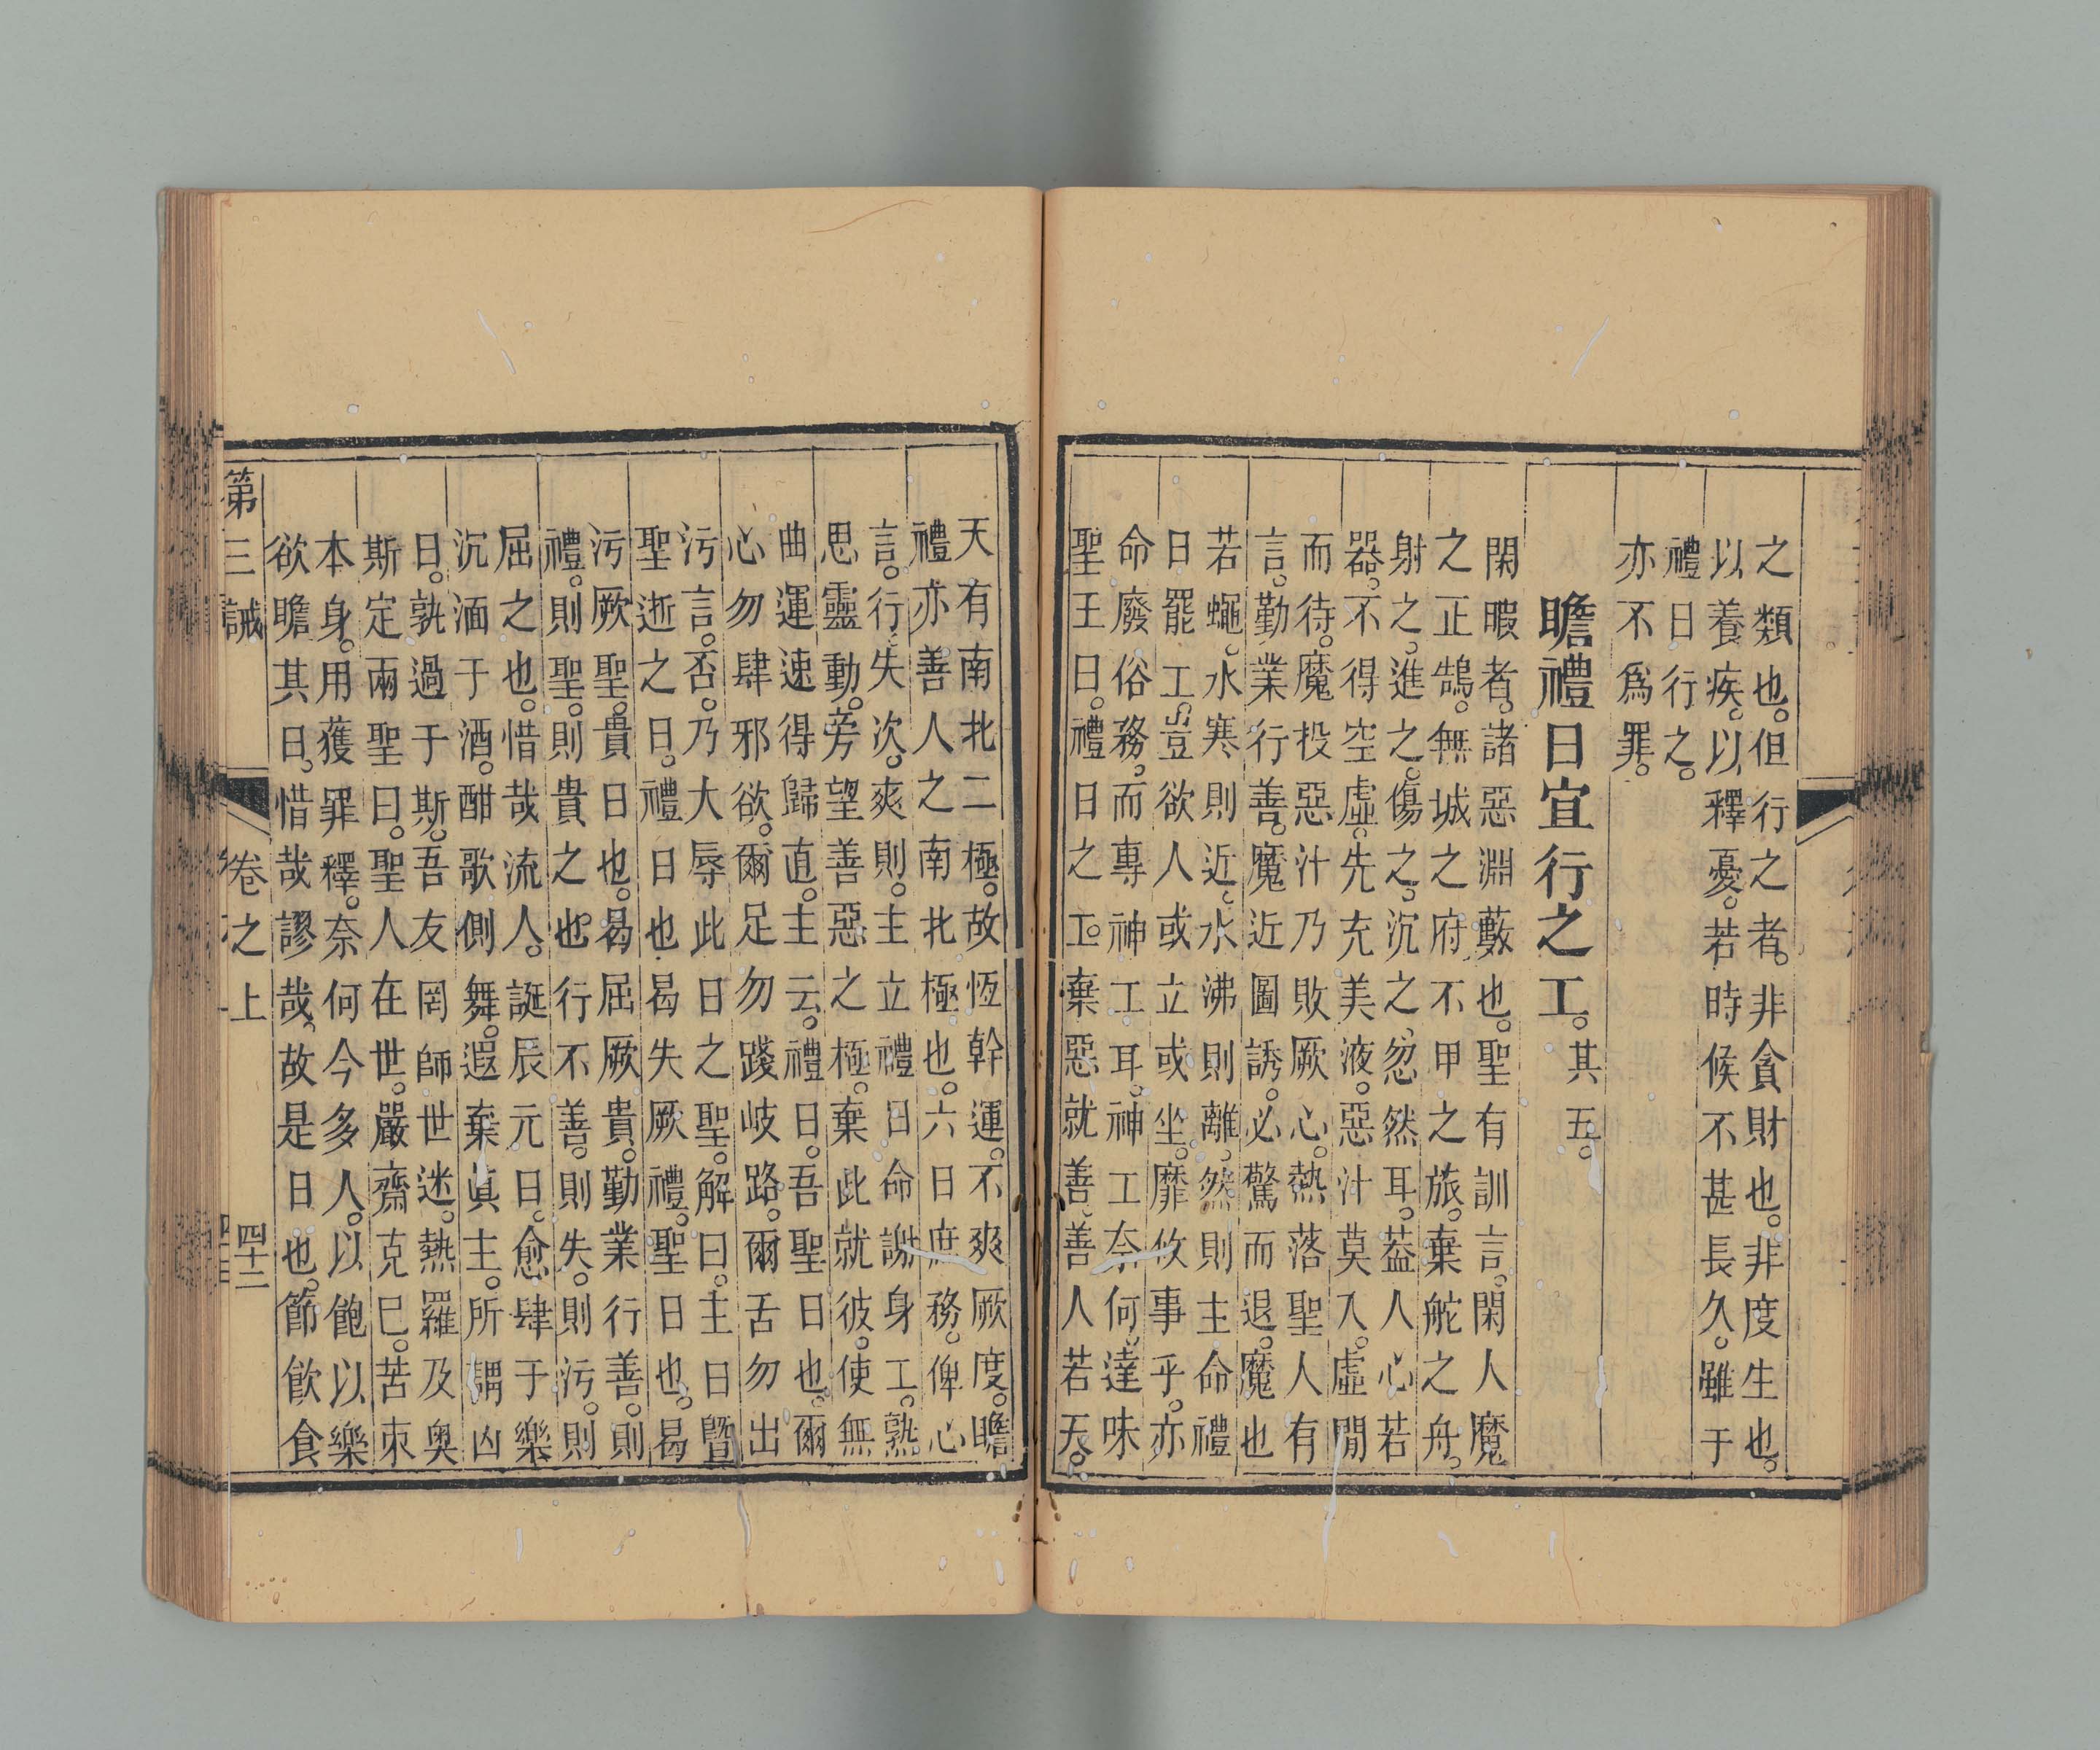 之類也。但行之者。非貪財也。非度生也。
以養疾。以釋憂。若時候不甚長久。雖于
禮日行之。
亦不爲罪。
瞻禮日宜行之工。其五。
閑暇者。諸惡淵藪也。聖有訓言。閑人魔
之正鵠。無城之府。不甲之旅。棄舵之舟。
射之。進之。傷之。沉之。忽然耳。葢人心若
器。不得空虛。先充美液。惡汁莫入。虛閒
而待。魔投惡汁。乃敗厥心。熱落聖人有
言。勤業行善。魔近圖誘。必驚而退。魔也
若蠅。水寒則近。水沸則離。然則主命禮
日罷工。豈欲人或立或坐。靡攸事乎。亦
命廢俗務。而專神工耳。神工奈何。達味
聖王曰。禮日之工。棄惡就善。善人若天。
天有南北二極。故恆幹運。不爽厥度。瞻
禮亦善人之南北極也。六日庶務。俾心
言。行失次。爽則。主立禮日。命謝身工。熟
思靈動。旁望善惡之極。棄此就彼。使無
曲運。速得歸直。主云。禮日。吾聖日也。爾
心勿肆邪欲。爾足勿踐岐路。爾舌勿出
污言。否。乃大辱此日之聖。解曰。主曰曁
聖逝之日。禮日也。曷失厥禮。聖日也。曷
污厥聖。貴日也。曷屈厥貴。勤業行善。則
禮。則聖。則貴之也。行不善。則失。則污。則
屈之也。惜哉流人。誕辰元日。愈肆于樂
沉湎于酒。酣歌側舞。遐棄眞主。所謂凶
日。孰過于斯。吾友罔師世迷。熱羅及奥
斯定兩聖曰。聖人在世。嚴齋克己。苦朿
本身。用獲罪釋。奈何今多人。以飽以樂
欲瞻其日。惜哉謬哉。故是日也。節飮食
第三誡 卷之上 四十二